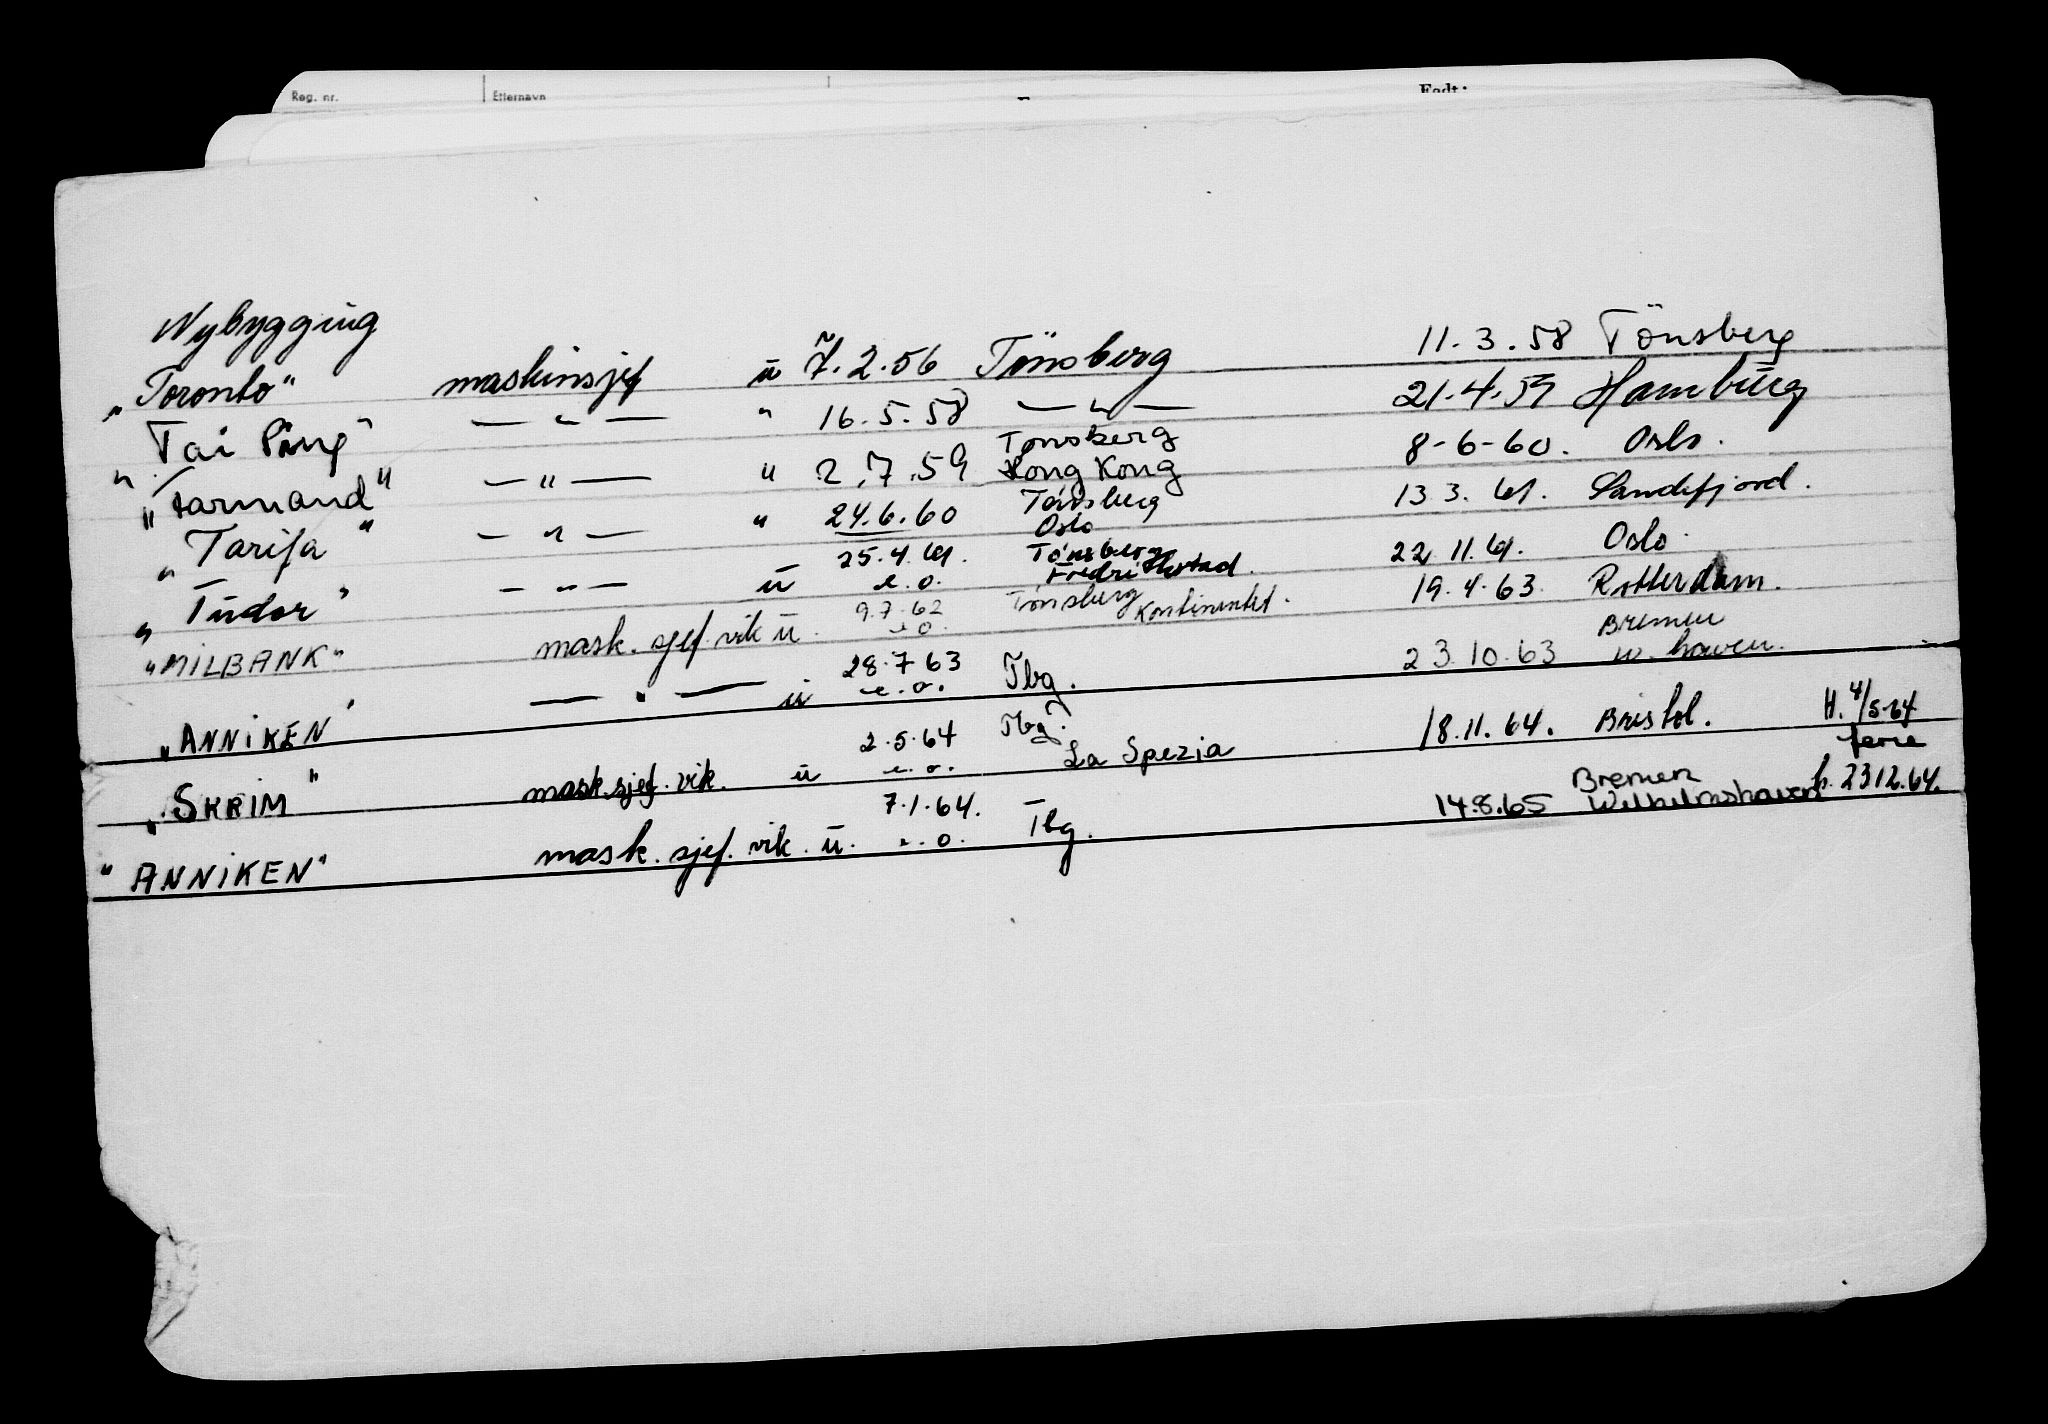 Reg. nr. Etternavn Født:
Nybygging
"Toronto" maskinsjef u 7.2.56 Tönsberg 11.3.58 Tönsberg
"Tai Ping" — " — " 16.5.58 — " — 21.4.59 Hamburg
"Farmand" — " — " 2.7.59 Tönsberg Hong Kong 8-6-60. Oslo.
"Tarifa" — " — " 24.6.60 Tönsberg Oslo 13.3.61. Sandefjord.
"Tudor" — " — u 25.4.61. e.o. Tönsberg Fredrikstad. 22.11.61. Oslo.
"MILBANK" mask. sjef. vik u. 9.7.62 e.o. Tönsberg Kontinentet. 19.4.63. Rotterdam.
"ANNIKEN" — " — u 28.7.63 e.o. Tbg. 23.10.63 Bremen w. haven.
"SKRIM" mask.sjef. vik. u 2.5.64 e.o. Tbg. La Spezia 18.11.64. Bristol. H. 4/5-64 ferie
"ANNIKEN" mask. sjef. vik. u. 7.1.64. e.o. Tbg. 14.8.65 Bremen Wilhelmshaven h. 23.12.64.